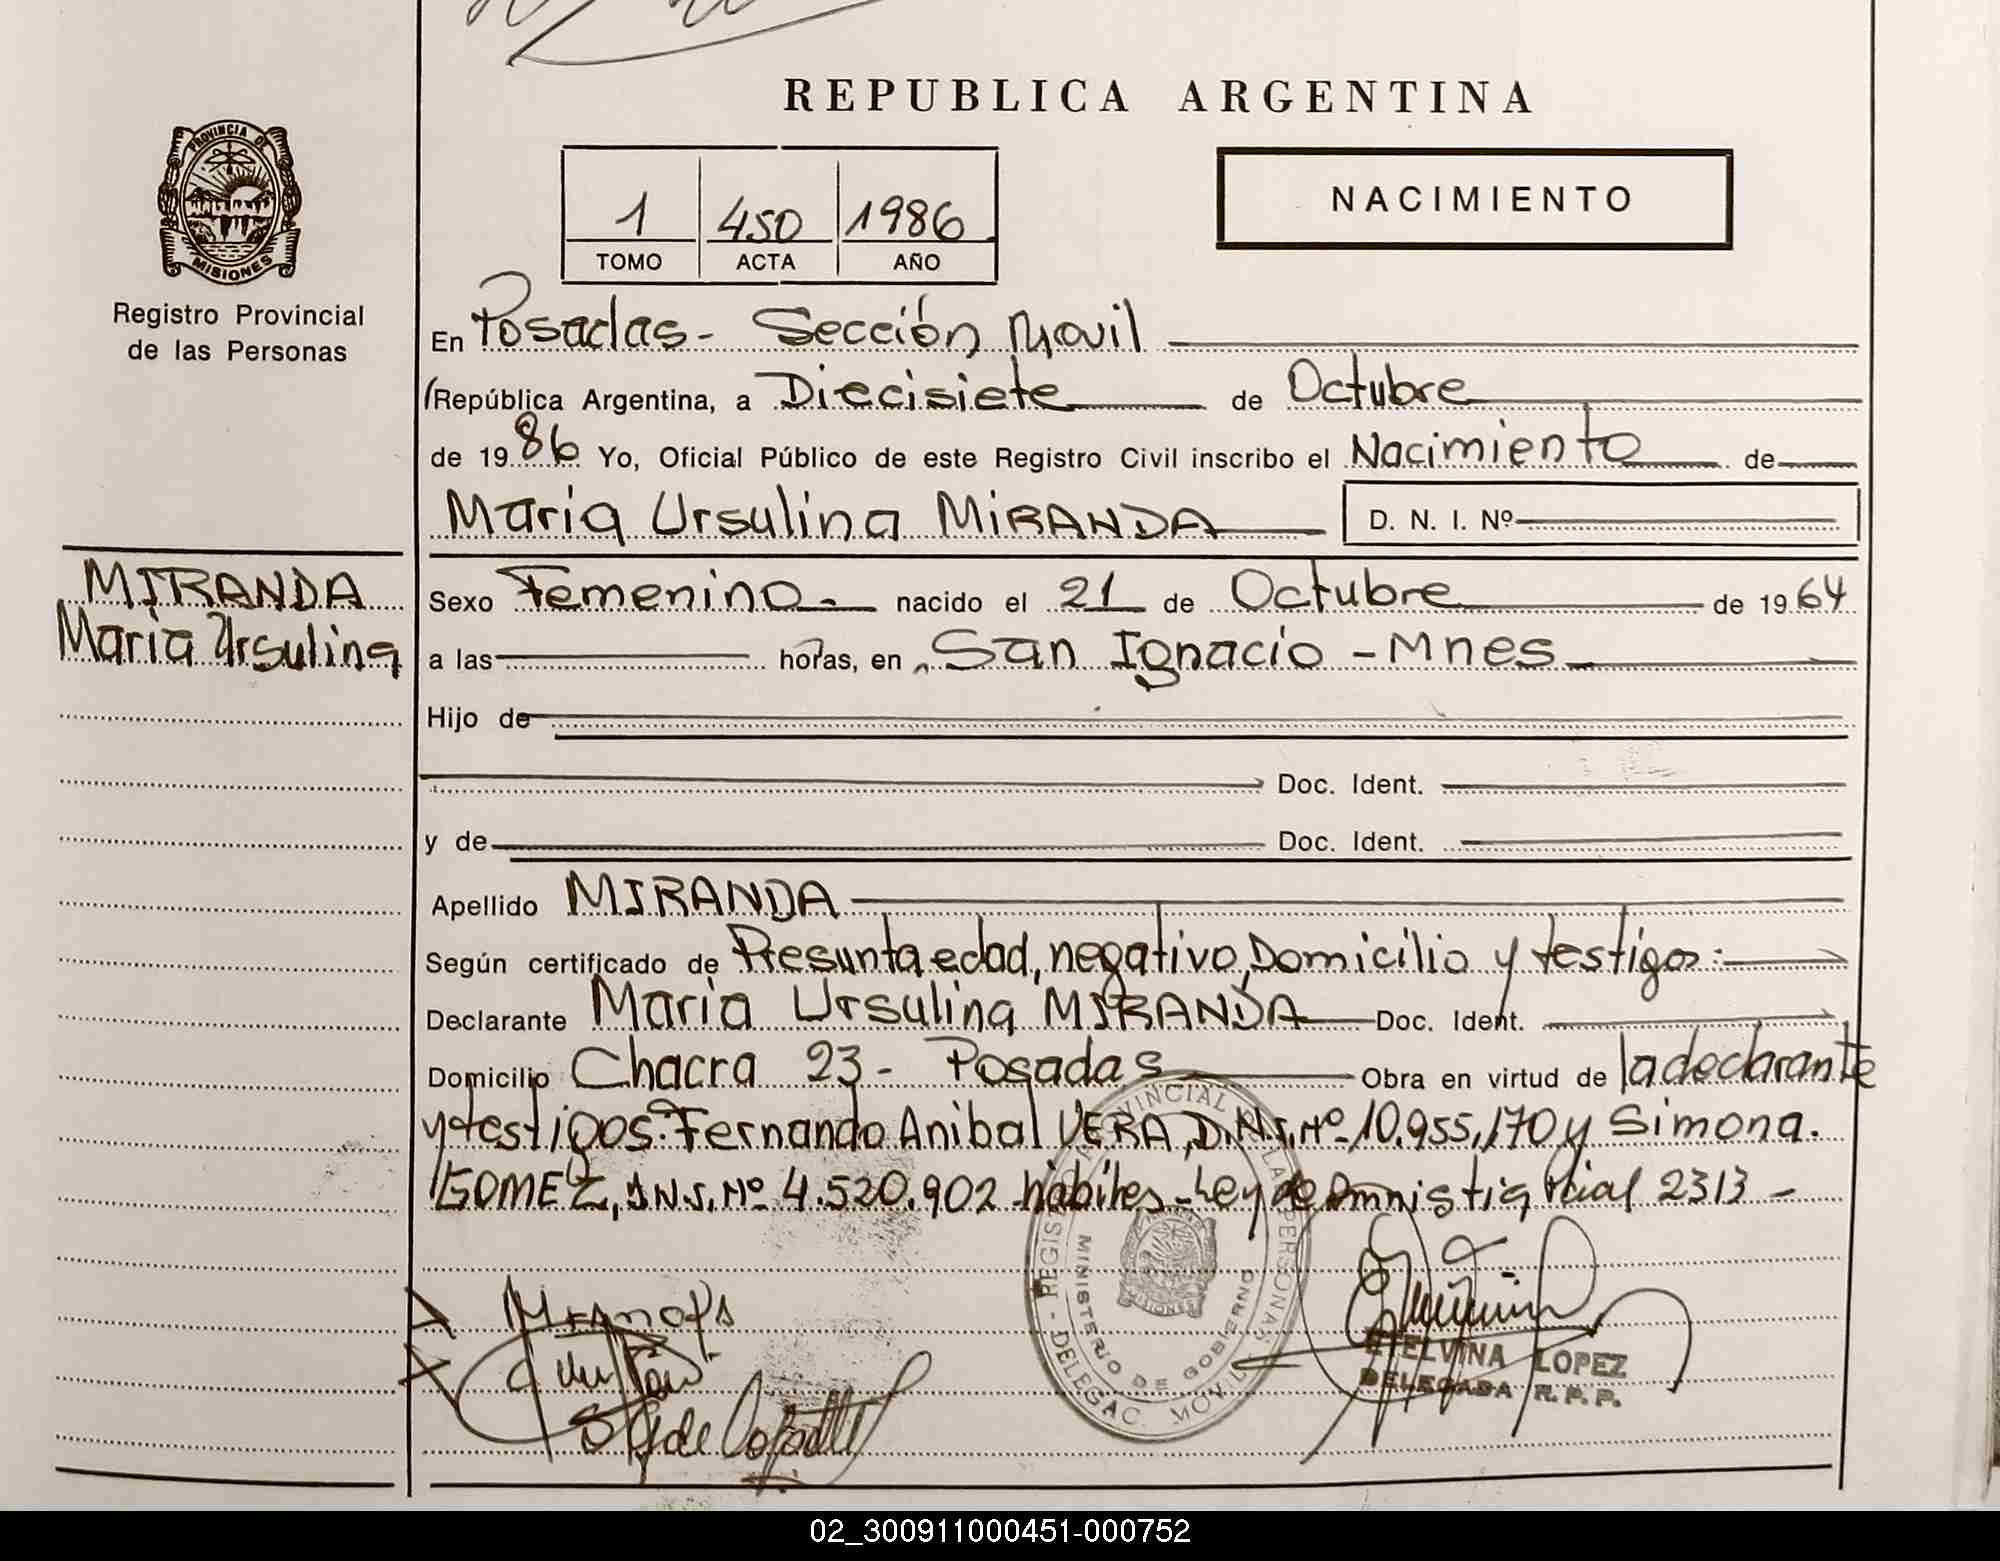 REPUBLICA ARGENTINA
PROVINCIA DE
MISIONES
Registro Provincial
de las Personas
1 450 1986
TOMO ACTA AÑO
NACIMIENTO
En Posadas - Sección Movil
(República Argentina, a Diecisiete de Octubre
de 1986 Yo, Oficial Público de este Registro Civil inscribo el Nacimiento de
Maria Ursulina MIRANDA D. N. I. Nº
MIRANDA
Maria Ursulina
Sexo Femenino - nacido el 21 de Octubre de 1964
a las horas, en San Ignacio - Mnes
Hijo de
Doc. Ident.
y de Doc. Ident.
Apellido MIRANDA
Según certificado de Presunta edad, negativo, Domicilio y testigos:
Declarante Maria Ursulina MIRANDA Doc. Ident.
Domicilio Chacra 23 - Posadas Obra en virtud de la declarante
y testigos: Fernando Anibal VERA, D.N.I. Nº 10.955.170 y Simona
GOMEZ, D.N.I. Nº 4.520.902 hábiles - Ley de Amnistia Pcial 2313 -
REGISTRO PROVINCIAL DE LAS PERSONAS - DELEGAC. MOVIL
MINISTERIO DE GOBIERNO
MISIONES
ETELVINA LOPEZ
DELEGADA R. P. P.
02_300911000451-000752